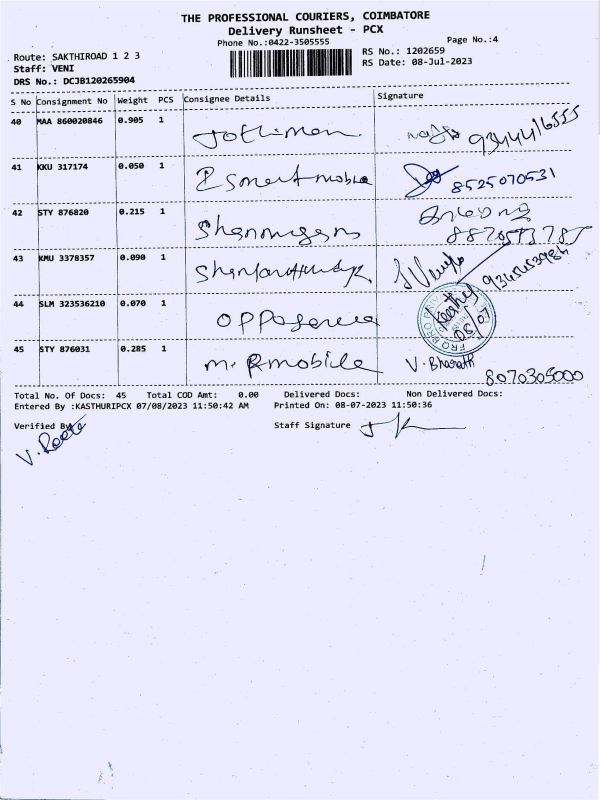 THE PROFESSIONAL COURIERS, COIMBATORE
Delivery Runsheet - PCX
Phone No.:0422-3505555
Page No.:4
Route: SAKTHIROAD 1 2 3
RS No.: 1202659
Staff: VENI
RS Date: 08-Jul-2023
DRS No.: DCJB120265904
S No Consignment No Weight PCS Consignee Details Signature
40 MAA 860020846 0.905 1 Jothimon 9344416555
41 KKU 317174 0.050 1 Smart mobile 8525070531
42 STY 876820 0.215 1 Shanmugam
43 KMU 3378357 0.090 1
44 SLM 323536210 0.070 1 Oppo
45 STY 876031 0.285 1 M. R mobile V. Bharath
8070305000
Total No. Of Docs: 45 Total COD Amt: 0.00 Delivered Docs: Non Delivered Docs:
Entered By :KASTHURIPCX 07/08/2023 11:50:42 AM Printed On: 08-07-2023 11:50:36
Verified By
Staff Signature